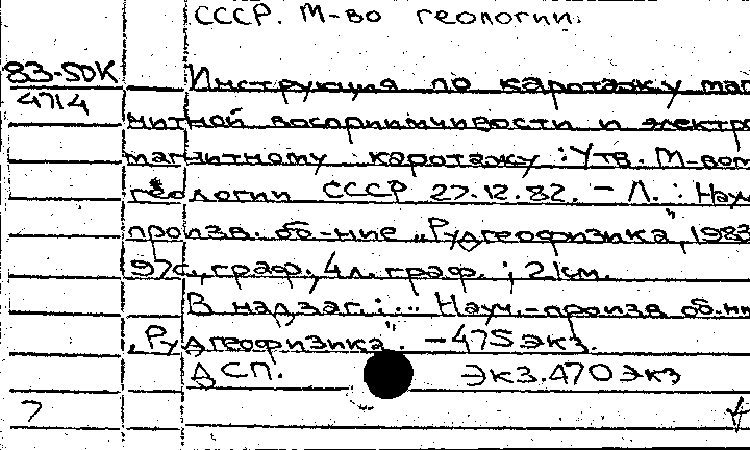 СССР. М-во геологии.
83-50К Инструкция по каротажу маг
4714
нитной восприимчивости и электро
магнитному каротажу : Утв. М-вом
геологии СССР 27.12.82. – Л. : Науч
произв. об-ние „Рудгеофизика”, 1983
97с., граф., 4л. граф. ; 21см.
В надзаг.: ... Науч.-произв. об-ни
„Рудгеофизика”. – 475 экз.
ДСП. Экз. 470 экз
7